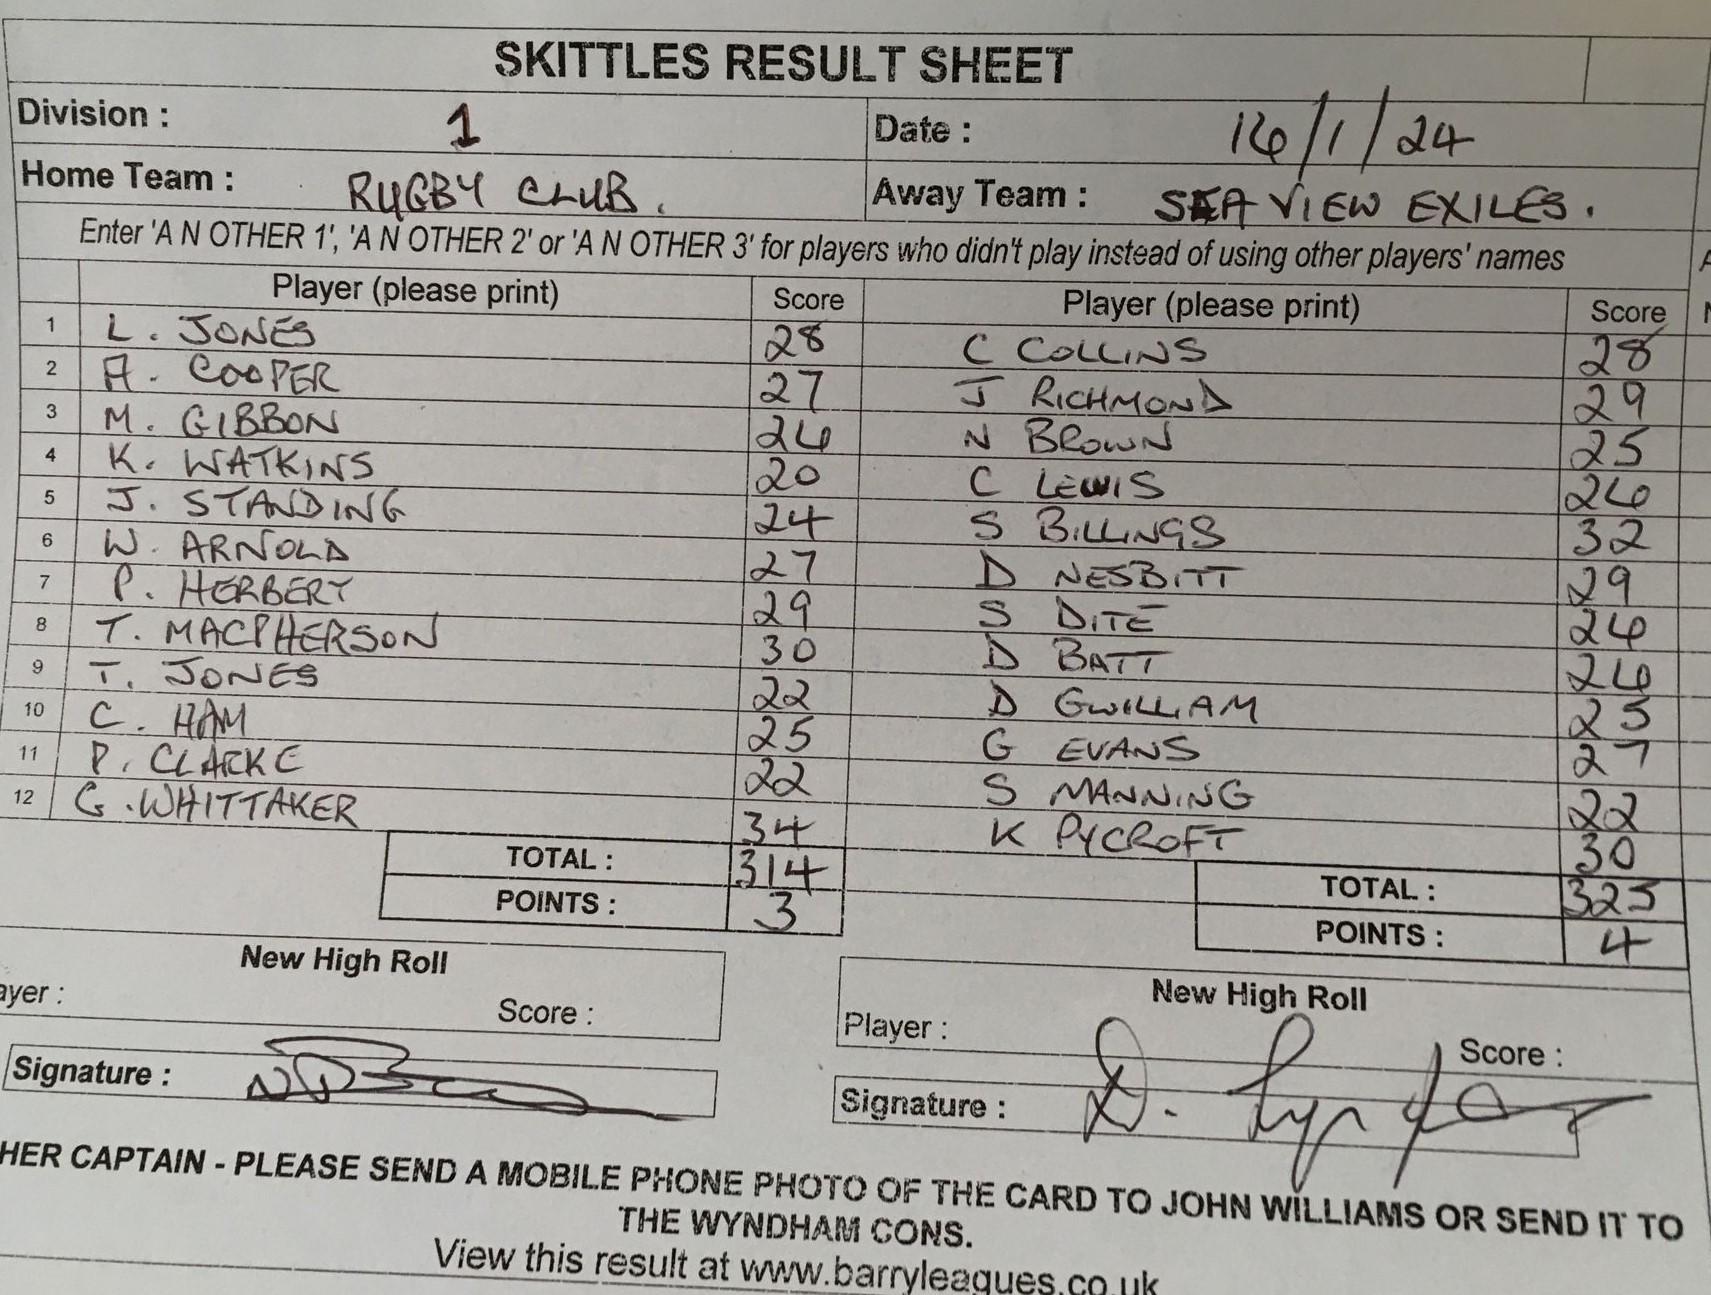 SKITTLES RESULT SHEET
Division : 1 Date : 16/1/24
Home Team : RUGBY CLUB. Away Team : SEA VIEW EXILES.
Enter 'A N OTHER 1', 'A N OTHER 2' or 'A N OTHER 3' for players who didn't play instead of using other players' names
Player (please print) Score Player (please print) Score
1 L. JONES 28 C COLLINS 28
2 A. COOPER 27 J RICHMOND 29
3 M. GIBBON 26 N BROWN 25
4 K. WATKINS 20 C LEWIS 26
5 J. STANDING 24 S BILLINGS 32
6 W. ARNOLD 27 D NESBITT 29
7 P. HERBERT 29 S DITE 26
8 T. MACPHERSON 30 D BATT 26
9 T. JONES 22 D GWILLIAM 25
10 C. HAM 25 G EVANS 27
11 P. CLARKE 22 S MANNING 22
12 G. WHITTAKER 34 K PYCROFT 30
TOTAL : 314 TOTAL : 325
POINTS : 3 POINTS : 4
New High Roll New High Roll
ayer : Score : Player : Score :
Signature : Signature :
HER CAPTAIN - PLEASE SEND A MOBILE PHONE PHOTO OF THE CARD TO JOHN WILLIAMS OR SEND IT TO
THE WYNDHAM CONS.
View this result at www.barryleagues.co.uk